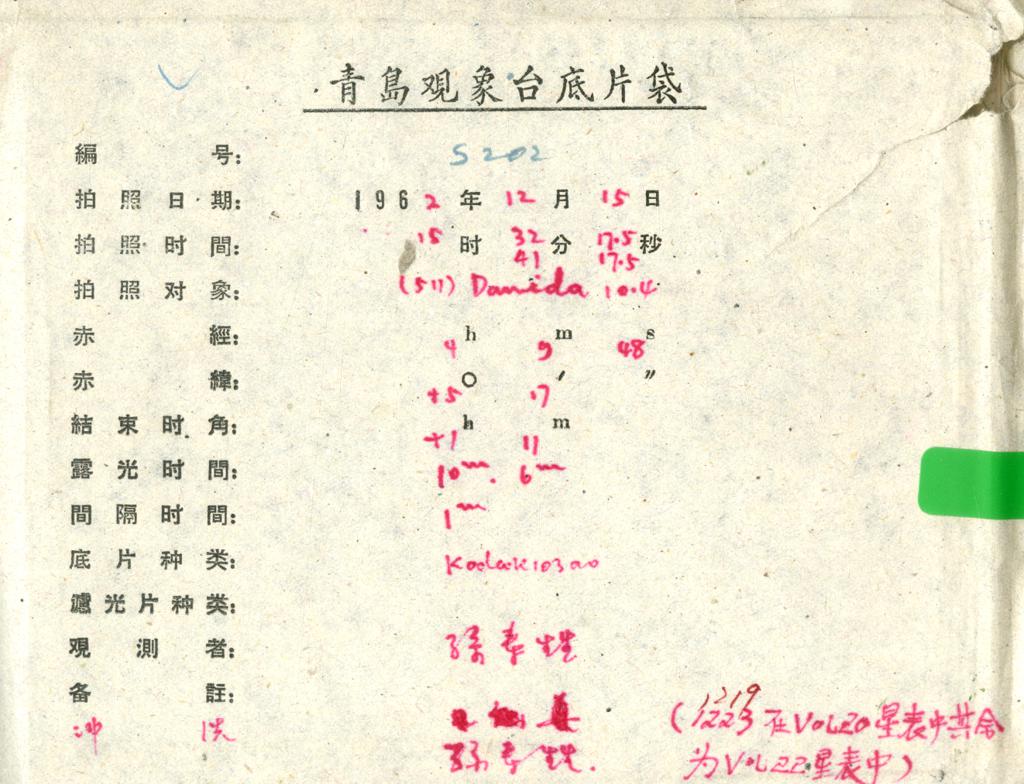 青島观象台底片袋
編号: S202
拍照日期: 1962年12月15日
拍照时間: 15时32分17.5秒
41 17.5
拍照对象: (511) Davida 10.4
赤經: 4h 9m 48s
赤緯: +5° 17′ ″
結束时角: +1h 11m
露光时間: 10m. 6m
間隔时間: 1m
底片种类: Kodak103aO
濾光片种类:
观測者: 孫寿
备註:
1219
(1223 在VOL20星表中其余
冲洗 孫寿
为VOL22星表中)